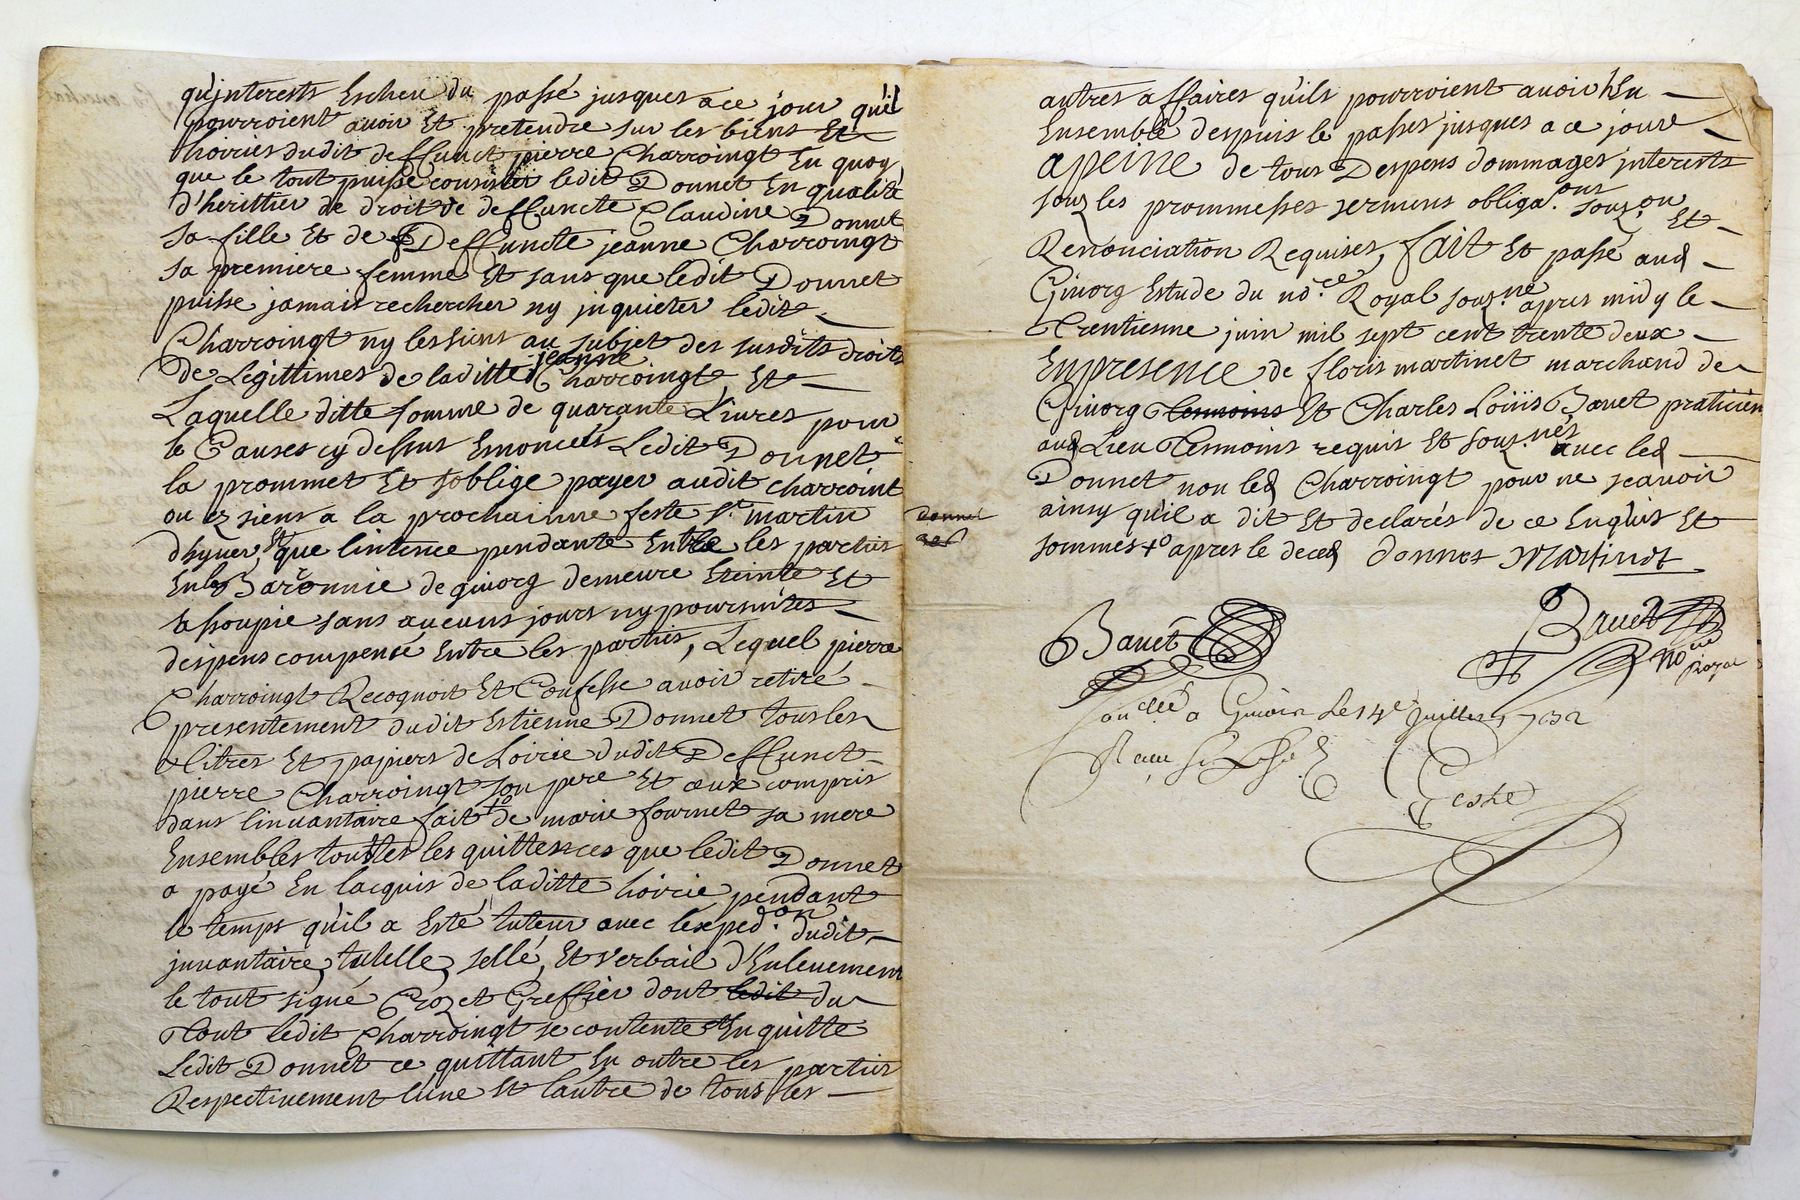 qu'jnterests Escheu du passé jusques a ce jour qu'il
pourroient avoir Et pretendre sur les biens Et
hoiries dudit deffunct pierre Charroingt En quoy
que le tout puisse consister ledit Donnet En qualité
d'herittier de droit de deffuncte Claudine Donnet
sa fille Et de Deffuncte jeanne Charroingt
sa premiere femme Et sans que ledit Donnet
puisse jamais rechercher ny jnquieter ledit
Charroingt ny les siens au subjet des susdits droits
De Legittimes de laditte jeanne Charroingt, Et
Laquelle ditte somme de quarante Livres pour
le Causes cy dessus Enoncéés Ledit Donnet
la prommet Et soblige payer audit charroint
ou ez siens a la prochainne feste St martin
dhyver, Et que lintence pendante Entre les parties
En la Baronnie de givorg demeure Eteinte Et
assoupie sans aucuns jours ny poursuites
despens compensé Entre les parties, Lequel pierre
Charroingt Recognoit Et Confesse avoir retiré
presentement dudit Estienne Donnet tous les
titres Et papiers de Loirie dudit Deffunct
pierre Charroingt son pere Et ceux compris
dans linvantaire fait +o de marie fournet sa mere
Ensembles touttes les quittences que ledit Donnet
a payé En lacquis de laditte hoirie pendant
le temps qu'il a Esté tuteur avec lexped.on dudit
jnvantaire, tutelle, sellé, Et verbail d'Enlevement
le tout signé Crozet Greffier dont ledit du
Tout ledit Charroingt se contente Et En quitte
Ledit Donnet ce quittant En outre les parties
Respectivement lune Et lautre de tous les
autres affaires qu'ils pourroient avoir Eu
Ensemble despuis le passes jusques a ce jour
a peine de tous Despens dommages jnterests
souz les prommesses sermens obliga.ons souz.on Et
Renonciation Requises, fait Et passé aud
Givorg Estude du no.re Royal souz.né apres midy le
trentiesme juin mil sept cent trente deux
En presence de floris martinet marchand de
Givorg tesmoins Et Charles Loüis Bavet praticien
aud Lieu tesmoins requis Et souz.nés avec led
Donnet non led Charroingt pour ne scavoir
ainsy qu'il a dit Et declarés de ce Enquis Et
sommés +o apres le deced donnet Martinet
donnet
Bavet
Bavet
No.re Royal
Con.llé a Givors Le 14e Juillet 1732
Geshe